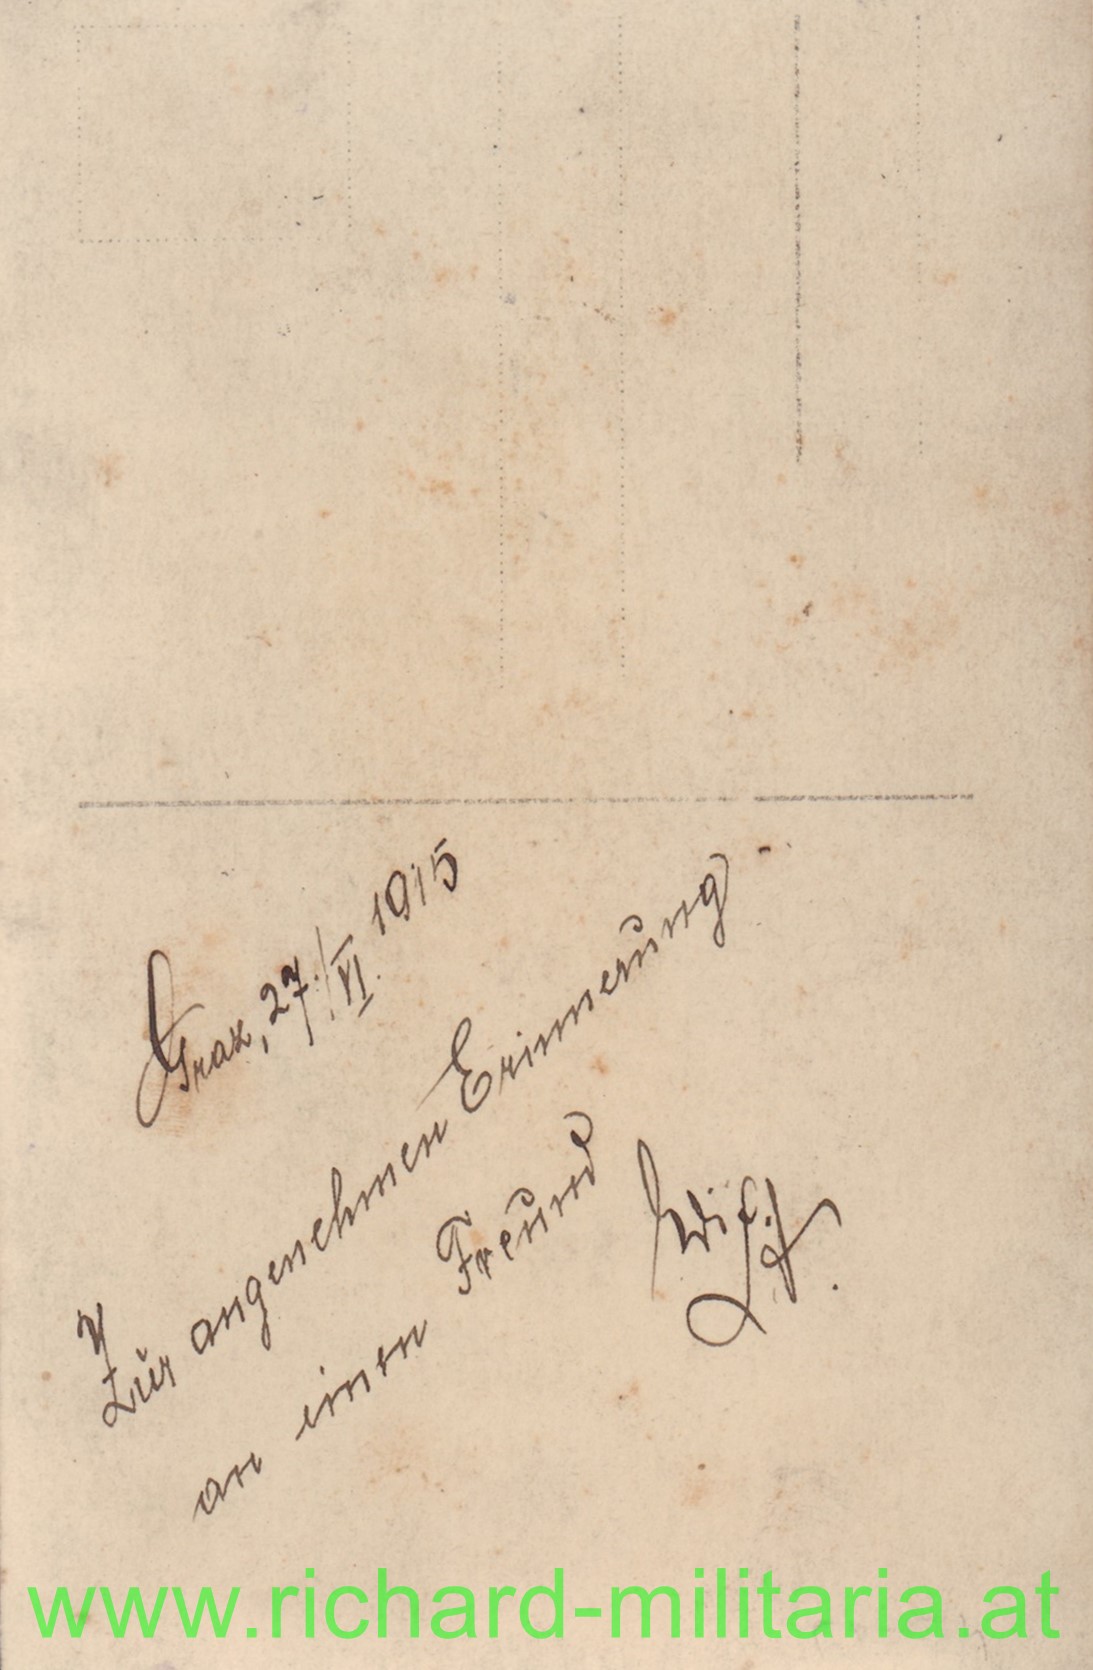 Graz, 27./VI. 1915
Zur angenehmen Erinnerung
an einen Freund
www.richard-militaria.at